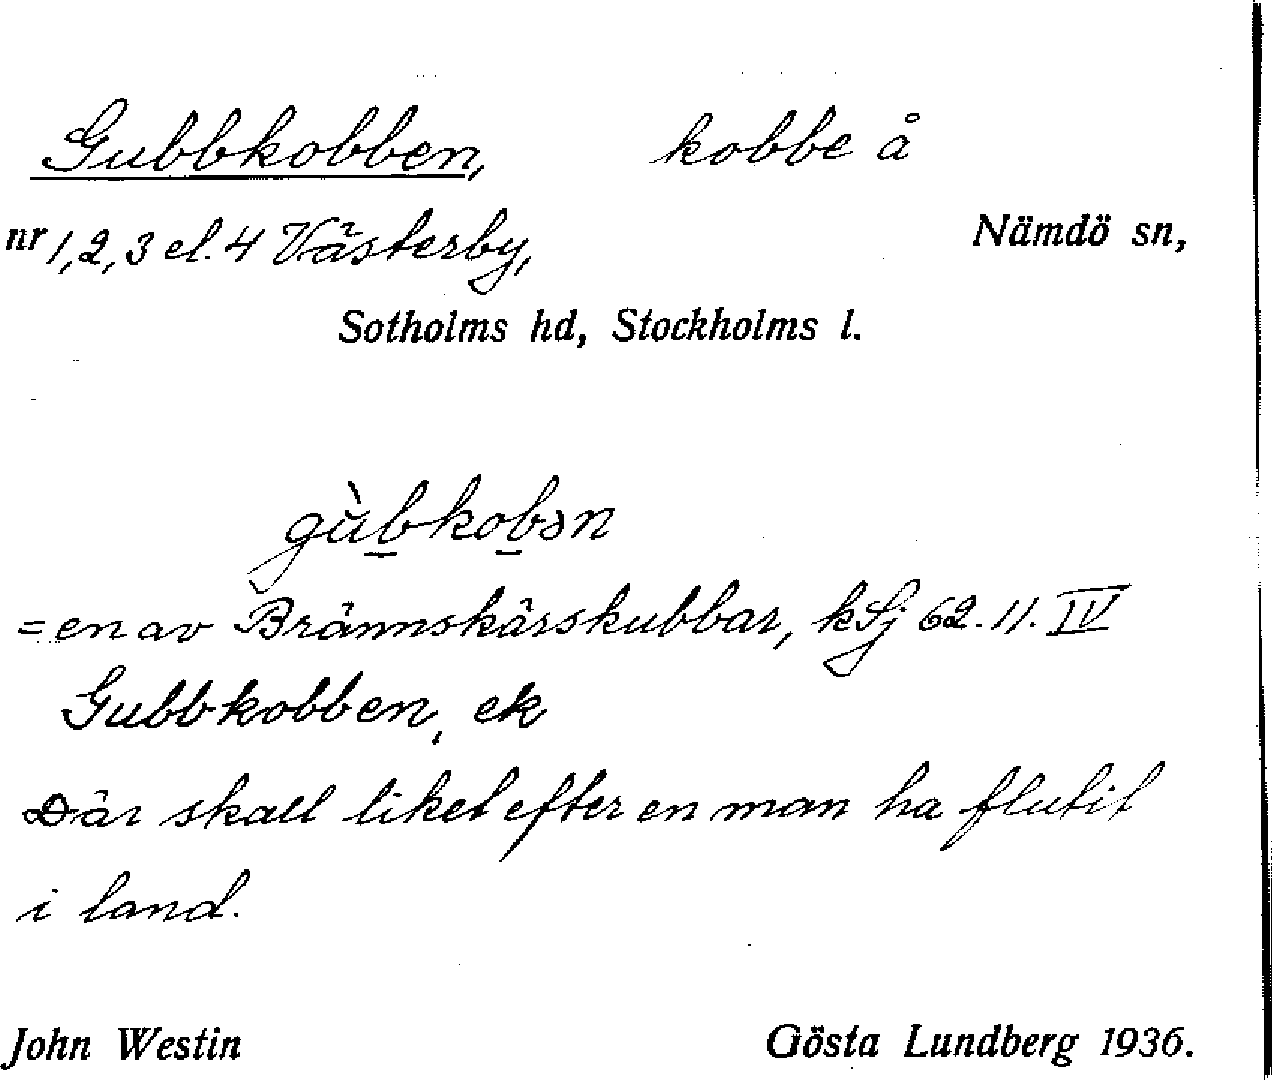 Gubbkobben, kobbe å
nr 1, 2, 3 el. 4 Västerby, Nämdö sn,
Sotholms hd, Stockholms l.
gùbkobən
= en av Brännskärskubbar, kSj 62. 11. IV
Gubbkobben, ek
Där skall liket efter en man ha flutit
i land.
John Westin Gösta Lundberg 1936.